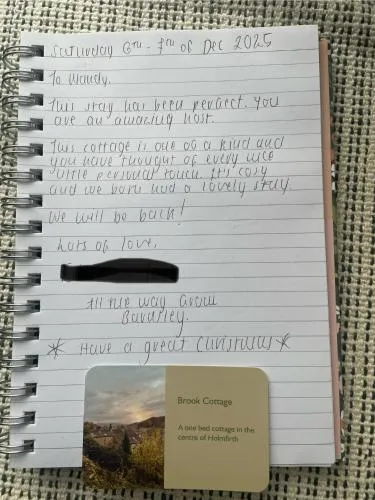 Saturday 6th - 7th of Dec 2025
To Wendy,
This stay has been perfect. You
are an amazing host.
This cottage is one of a kind and
you have thought of every nice
little personal touch. It's cosy
and we both had a lovely stay.
We will be back!
Lots of love,
All the way from
Barnsley.
* Have a great Christmas *
Brook Cottage
A one bed cottage in the
centre of Holmfirth